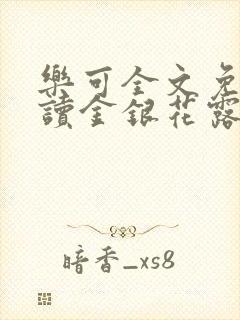 樂可全文免
讀金銀花露
暗香_xs8